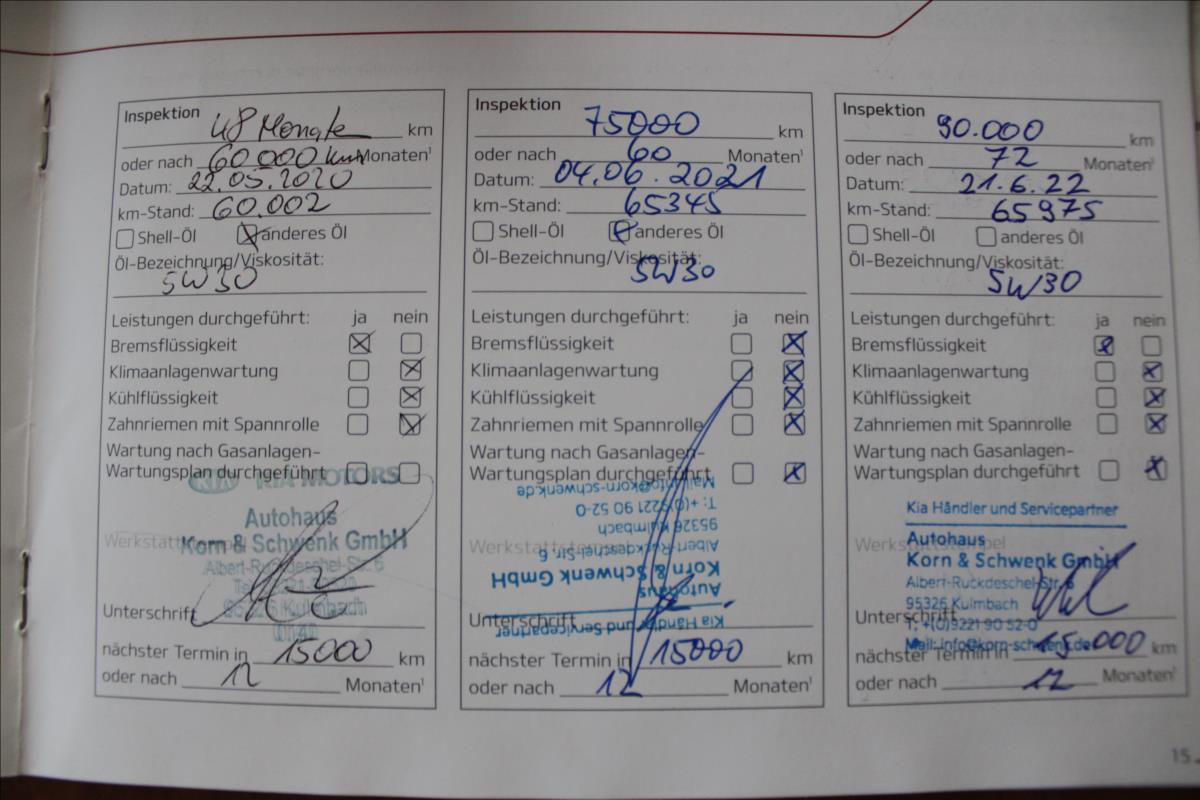 Inspektion 48 Monate km
oder nach 60 000 km Monaten¹
Datum: 22.05.2020
km-Stand: 60.002
Shell-Öl anderes Öl
Öl-Bezeichnung/Viskosität:
5W30
Leistungen durchgeführt: ja nein
Bremsflüssigkeit
Klimaanlagenwartung
Kühlflüssigkeit
Zahnriemen mit Spannrolle
Wartung nach Gasanlagen-
Wartungsplan durchgeführt
KIA MOTORS
Autohaus
Werkstattstempel
Korn & Schwenk GmbH
Albert-Ruckdeschel-Str. 6
95326 Kulmbach
Unterschrift
nächster Termin in 15000 km
oder nach 12 Monaten¹
Inspektion 75000 km
oder nach 60 Monaten¹
Datum: 04.06.2021
km-Stand: 65345
Shell-Öl anderes Öl
Öl-Bezeichnung/Viskosität:
5W30
Leistungen durchgeführt: ja nein
Bremsflüssigkeit
Klimaanlagenwartung
Kühlflüssigkeit
Zahnriemen mit Spannrolle
Wartung nach Gasanlagen-
Wartungsplan durchgeführt
Werkstattstempel
Kia Händler und Servicepartner
Autohaus
Korn & Schwenk GmbH
Albert-Ruckdeschel-Str. 6
95326 Kulmbach
T: +(0)9221 90 52-0
Mail: info@korn-schwenk.de
Unterschrift
nächster Termin in 15000 km
oder nach 12 Monaten¹
Inspektion 90.000 km
oder nach 72 Monaten¹
Datum: 21.6.22
km-Stand: 65975
Shell-Öl anderes Öl
Öl-Bezeichnung/Viskosität:
5W30
Leistungen durchgeführt: ja nein
Bremsflüssigkeit
Klimaanlagenwartung
Kühlflüssigkeit
Zahnriemen mit Spannrolle
Wartung nach Gasanlagen-
Wartungsplan durchgeführt
Kia Händler und Servicepartner
Werkstattstempel
Autohaus
Korn & Schwenk GmbH
Albert-Ruckdeschel-Str. 6
95326 Kulmbach
T: +(0)9221 90 52-0
Mail: info@korn-schwenk.de
Unterschrift
nächster Termin in 15.000 km
oder nach 12 Monaten¹
15